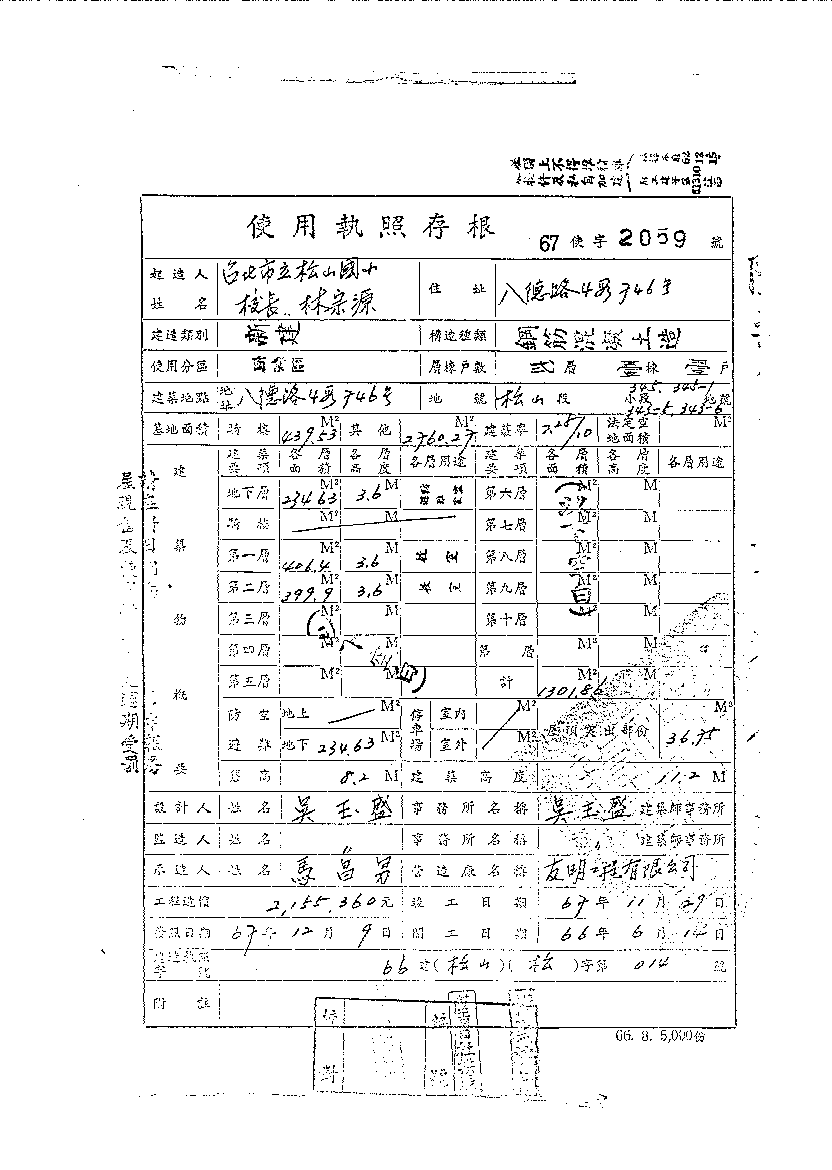 使用執照存根
67 使字 2059 號
起造人姓名 台北市立松山國小 校長 林宗源 住址 八德路4段746號
建造類別 新建 構造種類 鋼筋混凝土造
使用分區 商業區 層棟戶數 弍層 壹棟 壹戶
建築地點 地址 八德路4段746號 地號 松山段 小段 345, 345-1 345-5, 345-6 地號
基地面積 騎樓 439.53 M² 其他 2760.27 M² 建築率 /10 法定空地面積 M²
建築物概要
建築要項 各層面積 各層高度 各層用途 建築要項 各層面積 各層高度 各層用途
地下層 234.63 M² 3.6 M 第六層 M² M
騎樓 M² M 第七層 M² M
第一層 406.4 M² 3.6 M 教室 第八層 M² M
第二層 399.9 M² 3.6 M 教室 第九層 M² M
第三層 M² M 第十層 M² M
第四層 M² M 第 層 M² M
第五層 M² M 計 1301.86 M² M
(以下空白)
(以下空白)
防空避難 地上 M² 地下 234.63 M² 停車場 室內 M² 室外 M² 屋頂突出部份 36.75 M²
簷高 8.2 M 建築高度 11.2 M
設計人 姓名 吳玉盛 事務所名稱 吳玉盛 建築師事務所
監造人 姓名 〃 事務所名稱 〃 建築師事務所
承造人 姓名 馬昌男 營造廠名稱 友明工程有限公司
工程造價 2,155,360元 竣工日期 67年 11月 29日
發照日期 67年 12月 9日 開工日期 66年 6月 14日
建造執照字號 66建(松山)(松)字第 014 號
附註
66. 8. 5,000份